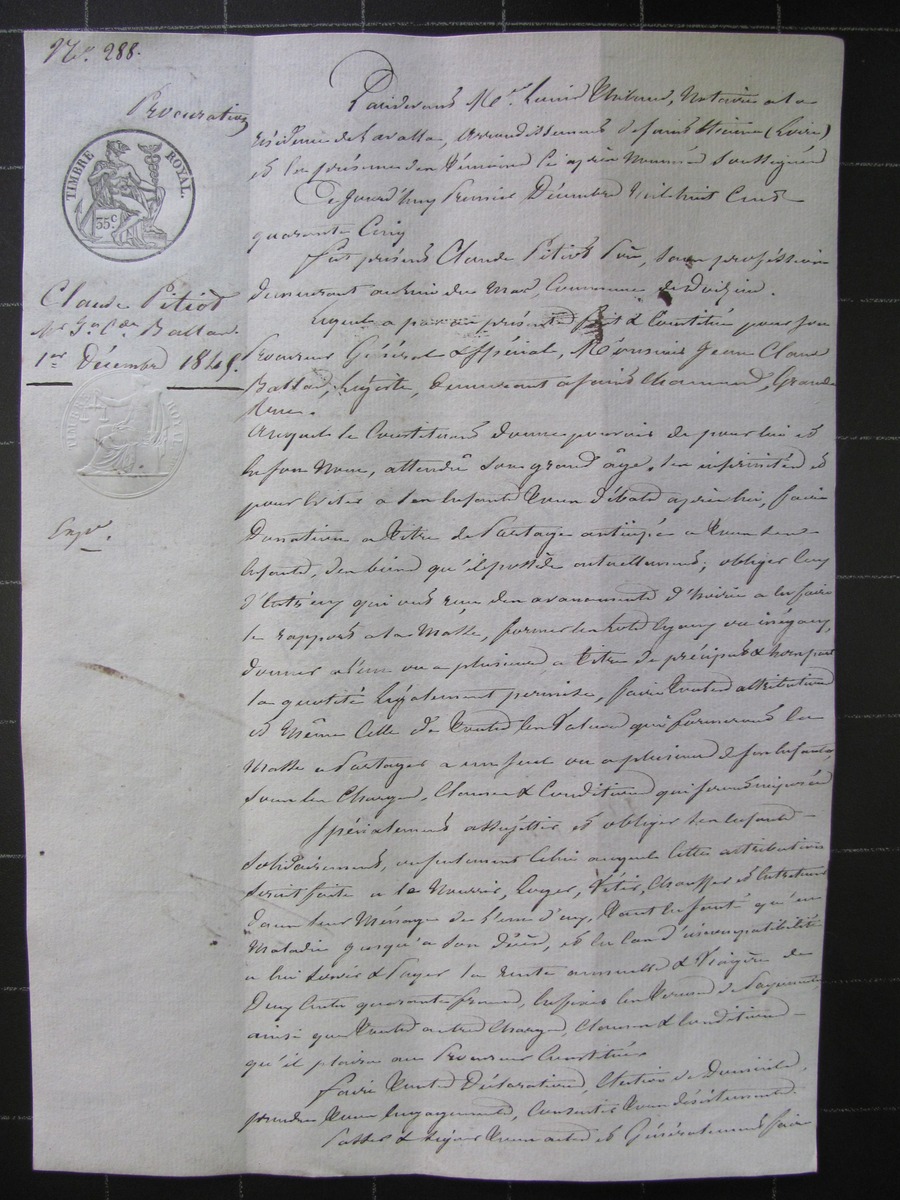 No. 288.
Procuration
TIMBRE ROYAL.
35 c
Claude Pitiot
à Mr Jn Cde Ballas
1er Décembre 1845.
TIMBRE ROYAL
Expé.
Pardevant Me Louis Thibaud, Notaire à la
résidence de Lavalla, arrondissement de Saint Etienne (Loire)
et en présence des témoins ci après nommés soussignés
Ce Jourd'huy Premier Décembre mil huit Cent
quarante Cinq
Fut présent Claude Pitiot Père, sans profession
demeurant au lieu du Mas, Commune de Doizieu.
Lequel a par ces présentes fait & Constitué pour son
Procureur Général & Spécial, Monsieur Jean Claude
Légiste, demeurant à Saint Chamond, Grande
Rue.
Auquel le Constituant donne pouvoir de pour lui et
en son Nom, attendu son grand âge, ses infirmités et
pour éviter à ses Enfants tous débats après lui, faire
Donation à titre de Partage anticipé à tous ses
Enfants, des biens qu'il possède actuellement; obliger ceux
d'entr'eux qui ont reçu des avancements d'hoirie à en faire
le rapport à la Masse, former les lots égaux ou inégaux,
donner à l'un ou à plusieurs à titre de préciput & hors part
la quotité légalement permise, faire toutes attributions
et même Celle de toutes les Valeurs qui formeront la
Masse à Partager à un seul ou à plusieurs de ses Enfants,
sous les Charges, Clauses & Conditions qui seront imposées
Spécialement assujettir et obliger ses Enfants
solidairement, ou seulement Celui auquel cette attribution
serait faite à le Nourrir, Loger, Vêtir, Chauffer et Entretenir
dans leur Ménage ou l'un d'eux, tant en santé qu'en
Maladie jusqu'à son décès, et en Cas d'incompatibilité
à lui servir & Payer la rente annuelle & Viagère de
Deux Cents quarante francs, en fixer les termes de Payements,
ainsi que toutes autres Charges, Clauses & Conditions
qu'il plaira au Procureur Constitué.
Faire toutes Déclarations, Election de Domicile,
prendre tous Engagements, Consentir tous désistements
Passer & signer tous actes et Généralement faire